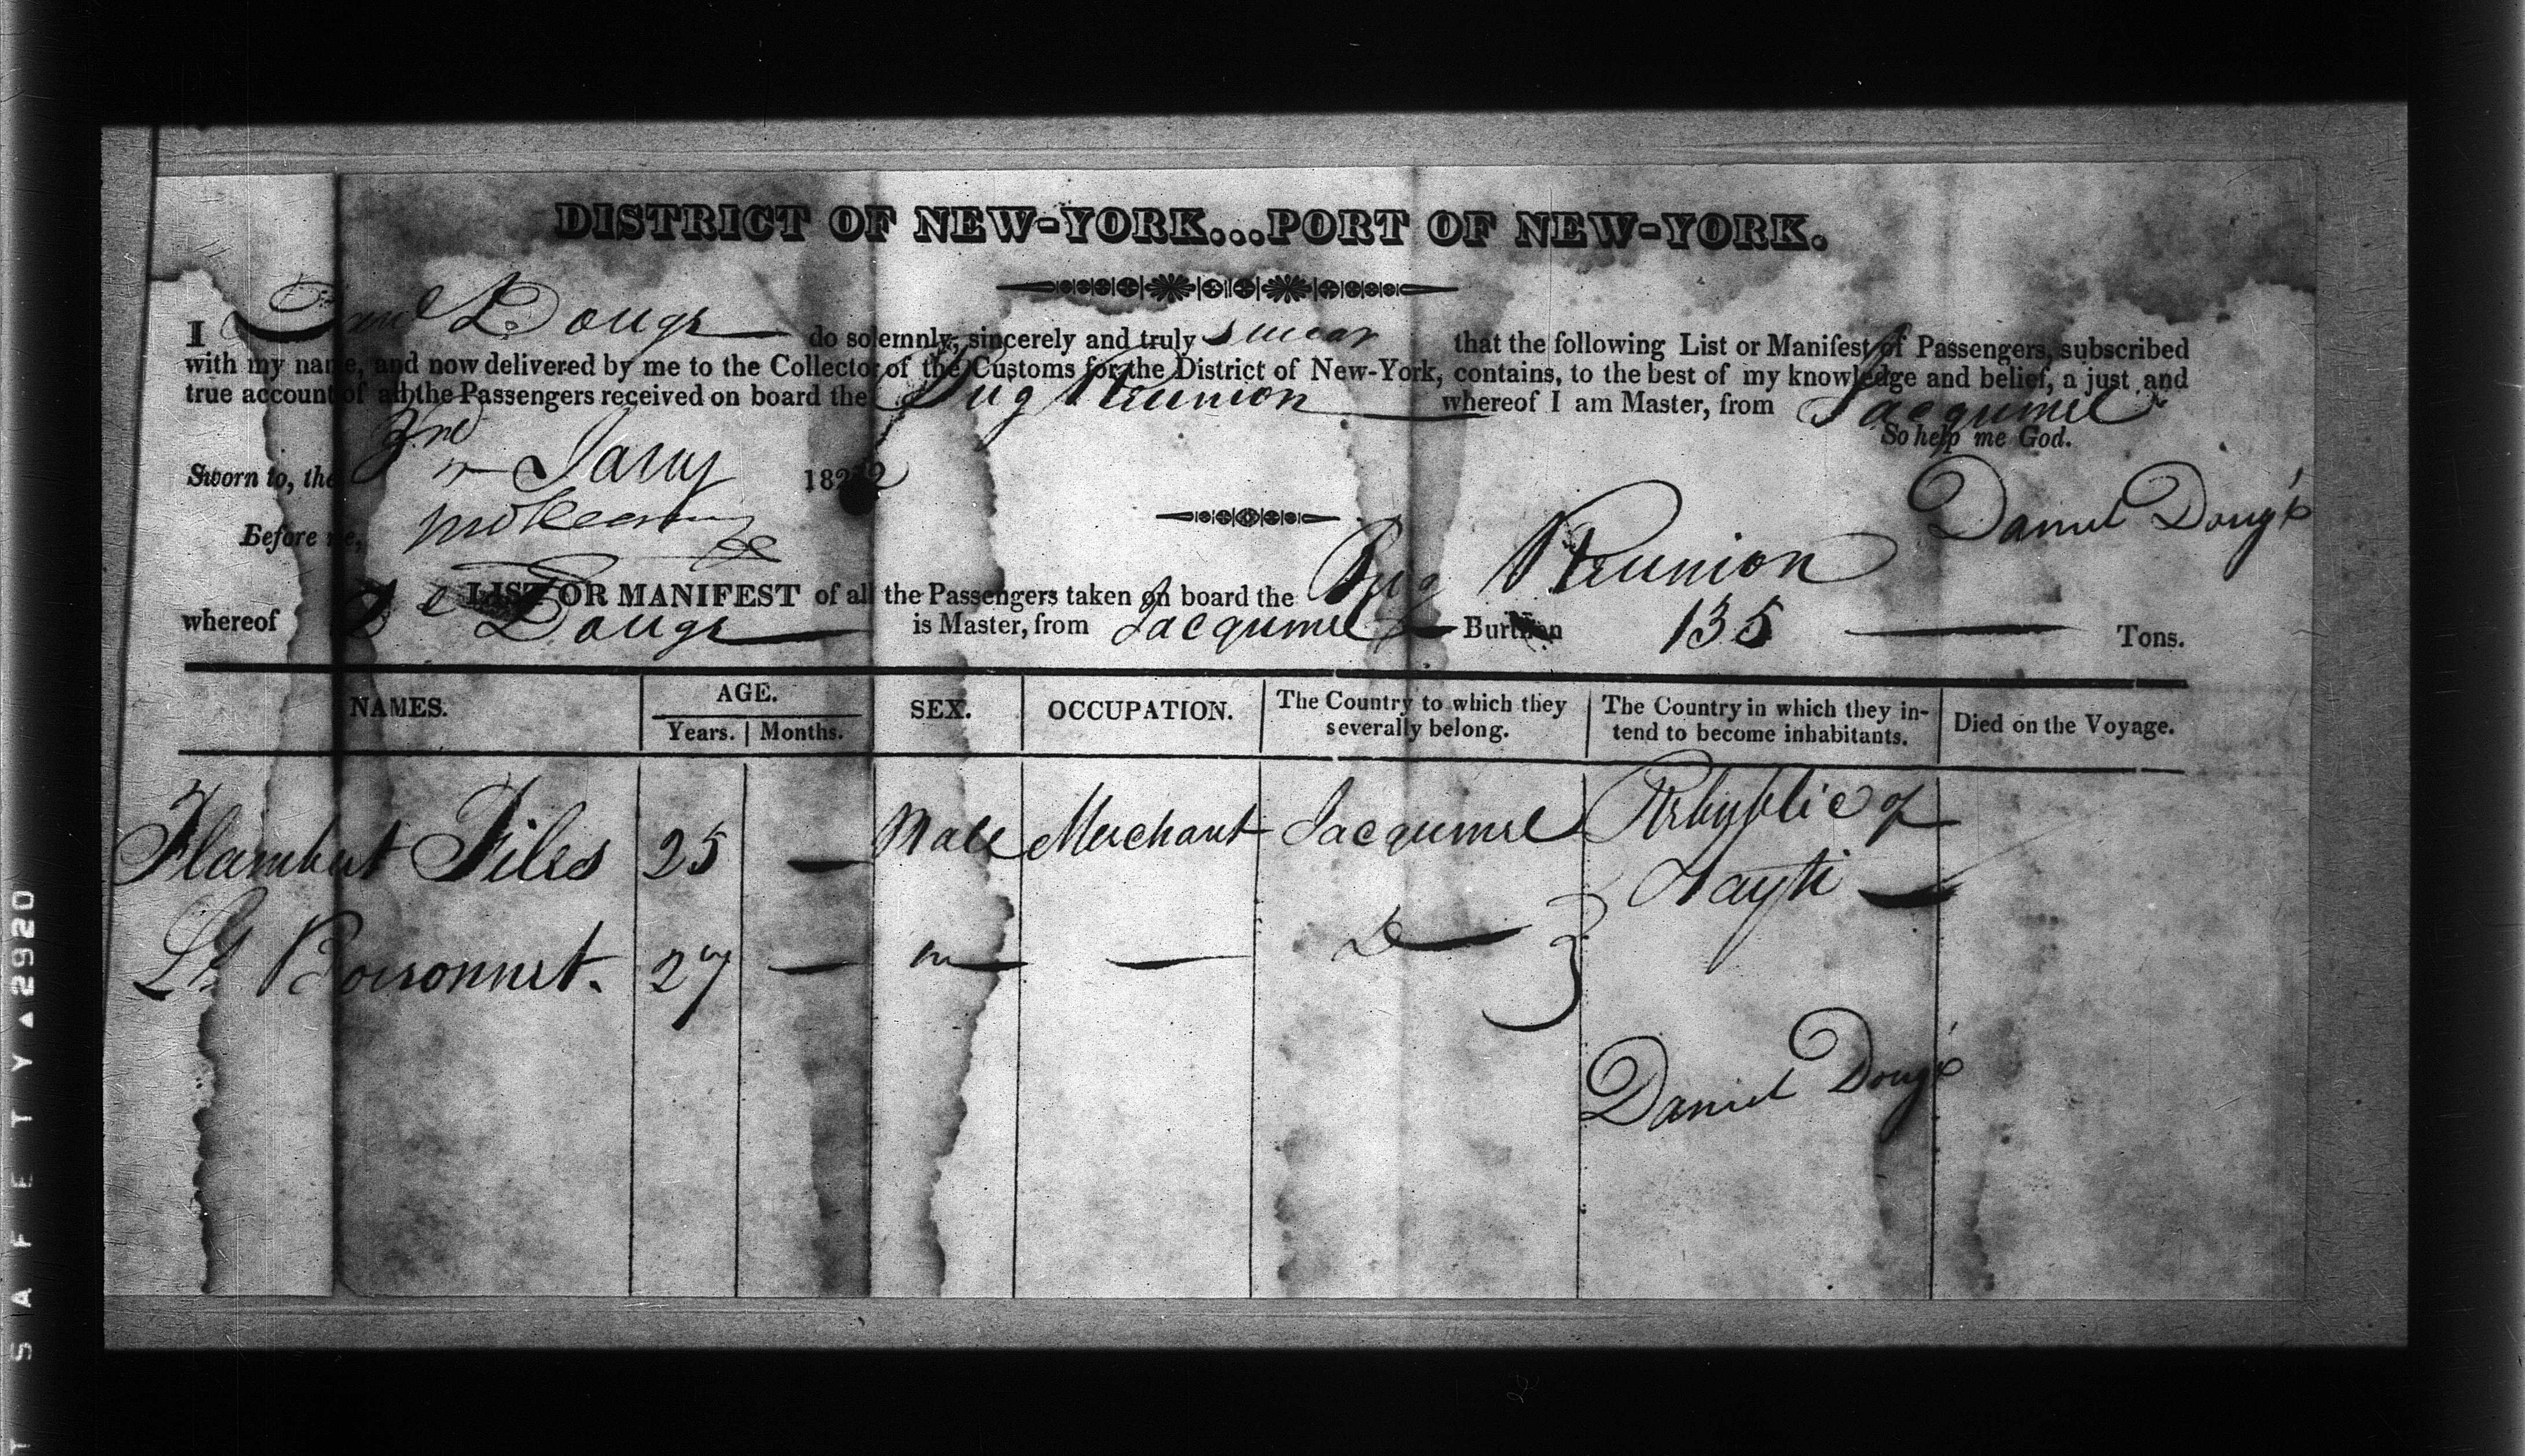 DISTRICT OF NEW-YORK...PORT OF NEW-YORK.
I Danl Dougé do solemnly, sincerely and truly swear that the following List or Manifest of Passengers, subscribed
with my name, and now delivered by me to the Collector of the Customs for the District of New-York, contains, to the best of my knowledge and belief, a just and
true account of all the Passengers received on board the Brig Reunion whereof I am Master, from Jacqumel
So help me God.
Sworn to, the 3rd Jany 1822
Daniel Dougé
Before me,
LIST OR MANIFEST of all the Passengers taken on board the Brig Reunion
whereof Dl Dougé is Master, from Jacqumel Burthen 135 Tons.
NAMES. AGE. Years. Months. SEX. OCCUPATION. The Country to which they severally belong. The Country in which they intend to become inhabitants. Died on the Voyage.
Flambert Files 25 — Male Merchant Jacqumel Republic of
Hayti —
Ls Boisonnet. 27 — m — — Do —
Daniel Dougé
SAFETY ▲ 2920